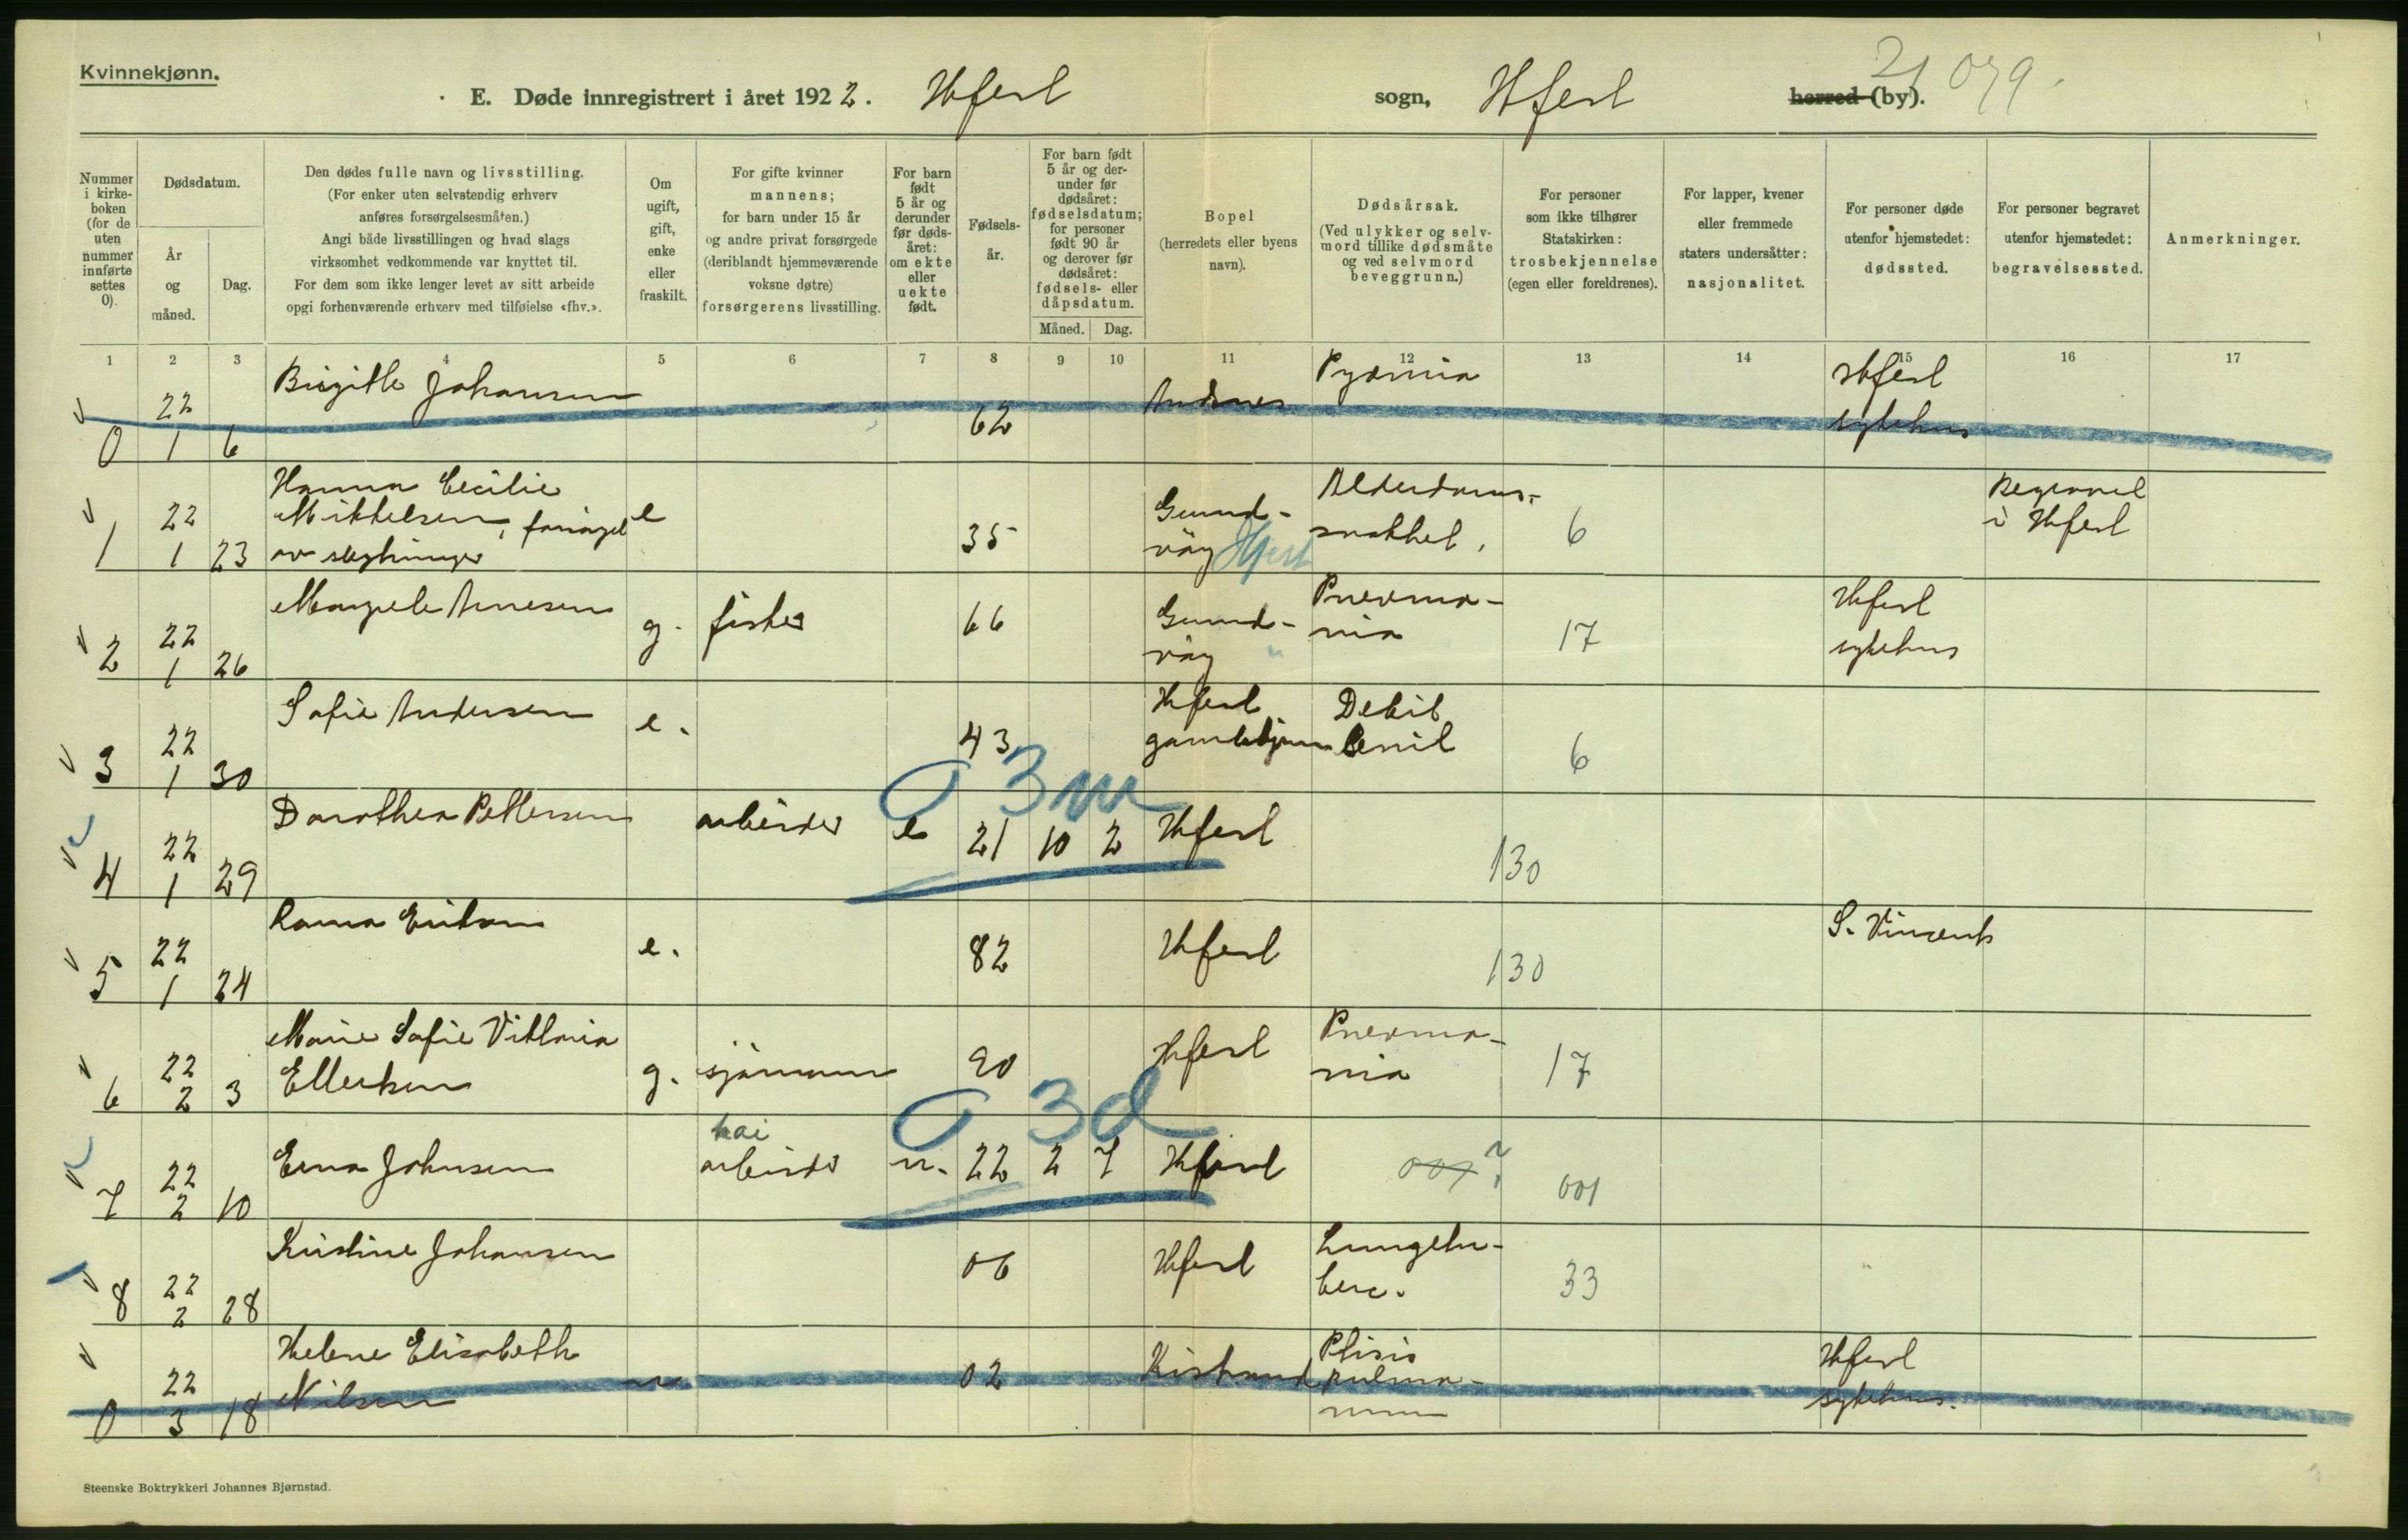 Kvinnekjønn.
E. Døde innregistrert i året 1922. Hfest sogn, Hfest herred (by). 21 079.
Nummer i kirkeboken (for de uten nummer innførte settes 0).
Dødsdatum.
År og måned.
Dag.
Den dødes fulle navn og livsstilling.
(For enker uten selvstendig erhverv
anføres forsørgelsesmåten.)
Angi både livsstillingen og hvad slags
virksomhet vedkommende var knyttet til.
For dem som ikke lenger levet av sitt arbeide
opgi forhenværende erhverv med tilføielse «fhv.».
Om
ugift,
gift,
enke
eller
fraskilt.
For gifte kvinner
mannens;
for barn under 15 år
og andre privat forsørgede
(deriblandt hjemmeværende
voksne døtre)
forsørgerens livsstilling.
For barn
født
5 år og
derunder
før døds-
året:
om ekte
eller
uekte
født.
Fødsels-
år.
For barn født
5 år og der-
under før
dødsåret:
fødselsdatum;
for personer
født 90 år
og derover før
dødsåret:
fødsels- eller
dåpsdatum.
Måned. Dag.
Bopel
(herredets eller byens
navn).
Dødsårsak.
(Ved ulykker og selv-
mord tillike dødsmåte
og ved selvmord
beveggrunn.)
For personer
som ikke tilhører
Statskirken:
trosbekjennelse
(egen eller foreldrenes).
For lapper, kvener
eller fremmede
staters undersåtter:
nasjonalitet.
For personer døde
utenfor hjemstedet:
dødssted.
For personer begravet
utenfor hjemstedet:
begravelsessted.
Anmerkninger.
1 2 3 4 5 6 7 8 9 10 11 12 13 14 15 16 17
Birgitte Johansen Andsnes Pyæmia Hfest
22 62 sykehus
0 1 6
Hanna Cecilie Alderdoms- Begravet
22 Mikkelsen, forsørget e 35 Grund- svakhet. 6 i Hfest
1 1 23 av slegtninger våg Hfest
Margrete Arnesen Pneumo- Hfest
22 g. fisker 66 Grund- nia 17 sykehus
2 1 26 våg "
Sofie Andersen e. Hfest Debil
22 43 gamlehjem senil 6
3 1 30
0 3 m
Dorothea Pettersen arbeider e 21 10 2 Hfest
22 130
4 1 29
Laura Eriksen S. Vincents
22 e. 82 Hfest 130
5 1 24
Marie Sofie Viktoria Pneumo-
22 Ellertsen g. sjømann 90 Hfest nia 17
6 2 3
0 3 d
kai
Erna Johnsen arbeider u. 22 2 7 Hfest 007 ?
22 001
7 2 10
Kristine Johansen Lungetu-
22 06 Hfest berc. 33
8 2 28
Helene Elisabeth Phisis Hfest
22 Nilsen u 02 Kistrand pulmo- sykehus.
0 3 18 num
Steenske Boktrykkeri Johannes Bjørnstad.